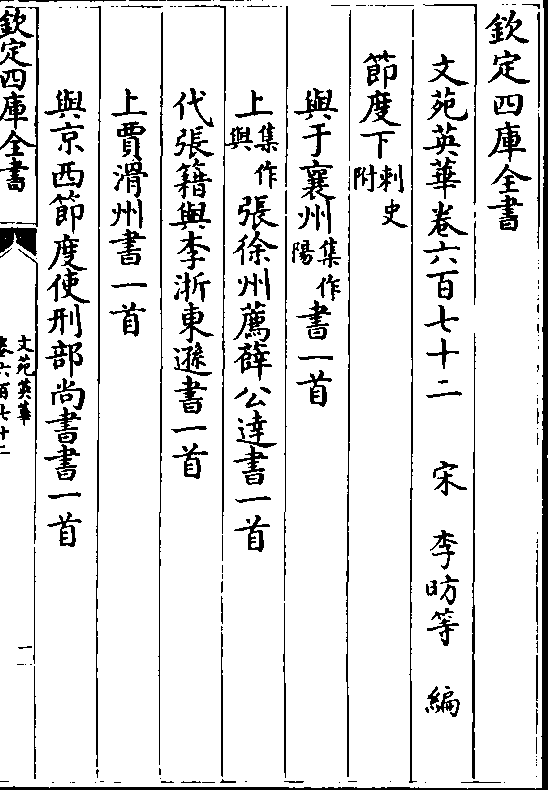 欽定四庫全書
文苑英華卷六百七十二 宋 李昉等 編
節度下刺史附
與于襄州集作陽書一首
上集作與張徐州薦薛公達書一首
代張籍與李浙東遜書一首
上賈滑州書一首
與京西節度使刑部尚書書一首
欽定四庫全書
文苑英華
卷六百七十二
一